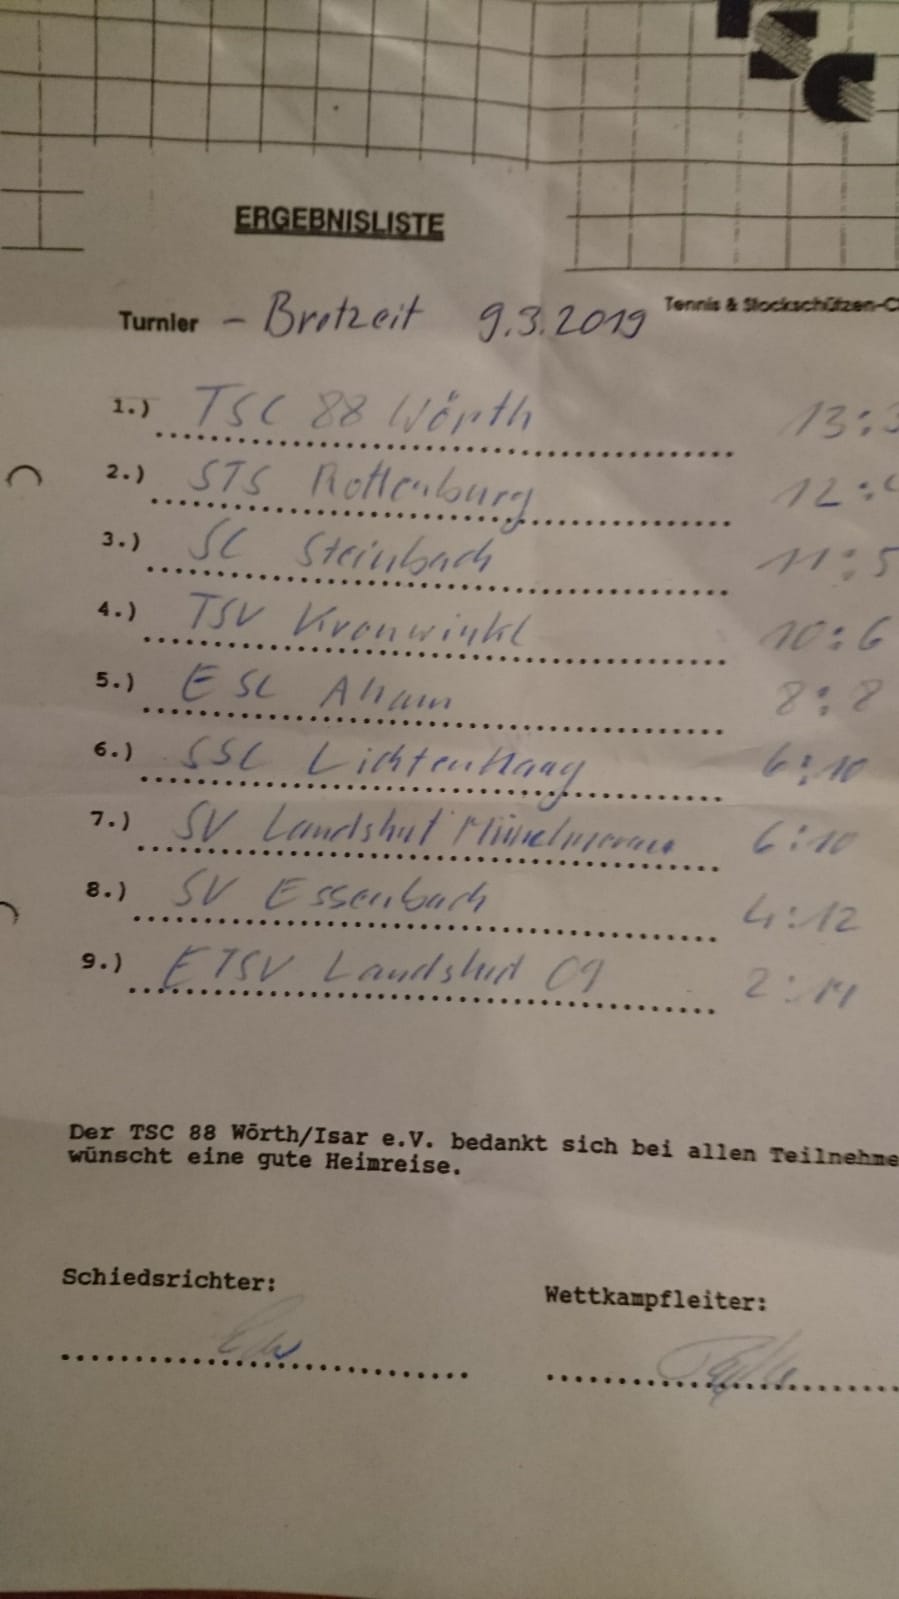 TSC
ERGEBNISLISTE
Tennis & Stockschützen-C
Turnier - Brotzeit 9.3.2019
1.) TSC 88 Wörth 13:3
2.) STS Rottenburg 12:4
3.) SC Steinbach 11:5
4.) TSV Kronwinkl 10:6
5.) ESC Aham 8:8
6.) SSC Lichtenhaag 6:10
7.) SV Landshut Münchnerau 6:10
8.) SV Essenbach 4:12
9.) ETSV Landshut 09 2:14
Der TSC 88 Wörth/Isar e.V. bedankt sich bei allen Teilnehme
wünscht eine gute Heimreise.
Schiedsrichter:
Wettkampfleiter: